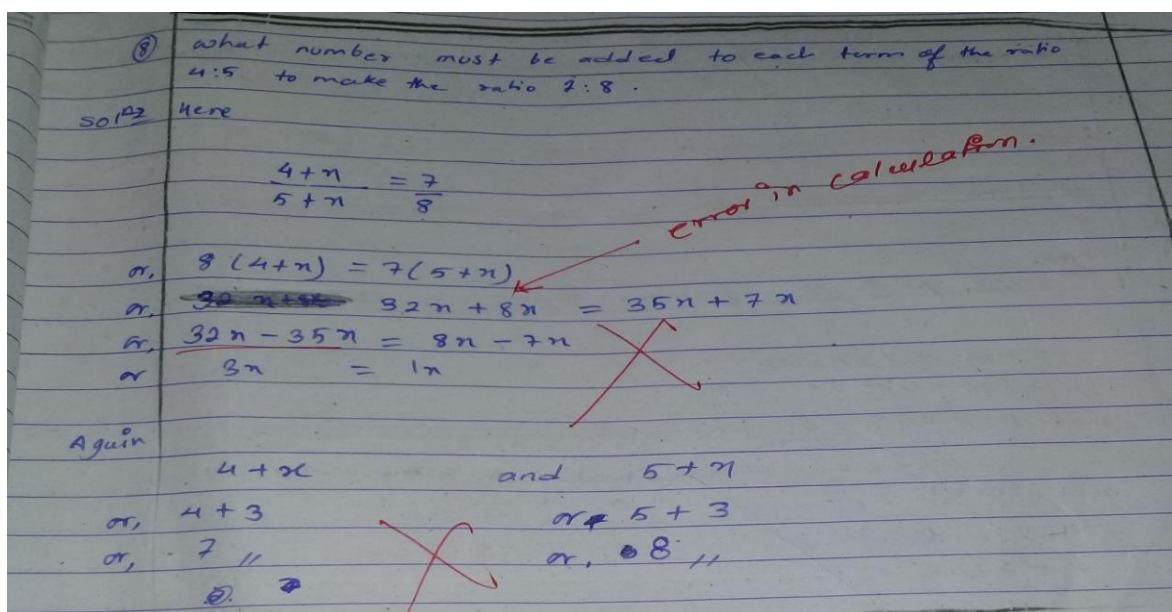 ⑧ what number must be added to each term of the ratio
4:5 to make the ratio 7:8.
Solⁿ Here
4+x / 5+x = 7/8
error in calculation.
or, 8 (4+x) = 7(5+x)
or, 32x + 8x = 35x + 7x
or, 32x - 35x = 8x - 7x
or 3x = 1x
Again
4+x and 5+x
or, 4+3 or 5+3
or, 7 ,, or, 8 ,,